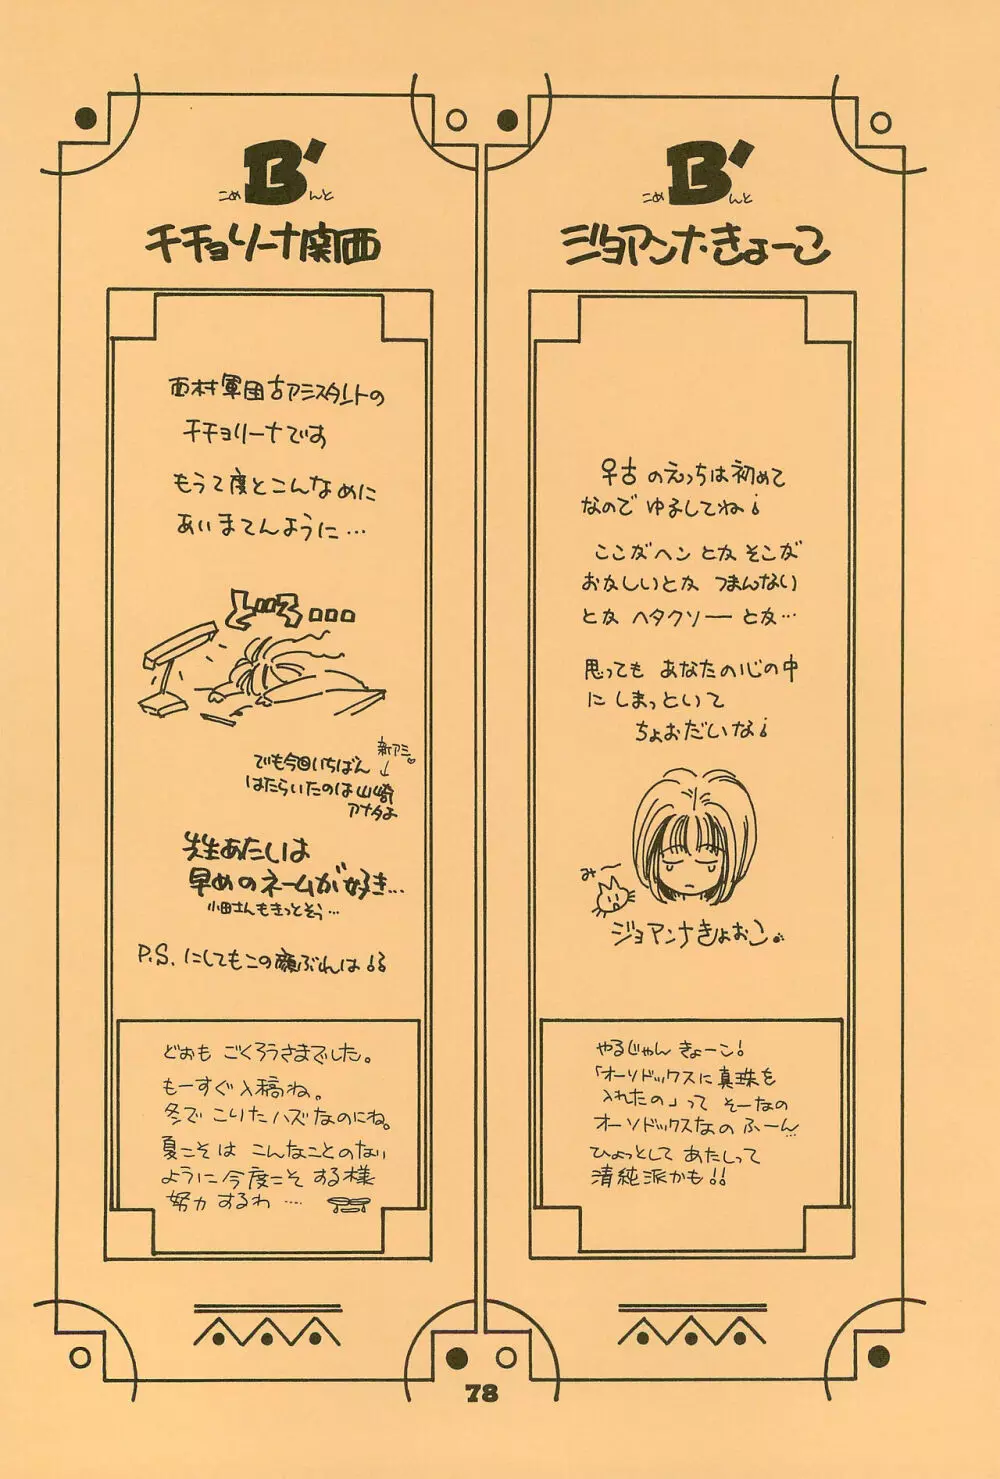 B'
こめ んと
チチョリーナ関西
西村軍団古アシスタントの
チチョリーナです
もうて度とこんなめに
あいませんように…
どどろ....
新アシ♡
↓
でも今回いちばん
はたらいたのは山崎
アナタよ
先生あたしは
早めのネームが好き…
小田さんもきっとそう…
P.S. にしてもこの顔ぶれは!!
どおも ごくろうさまでした。
もーすぐ入稿ね。
冬で こりたハズなのにね。
夏こそは こんなことのない
ように今度こそ する様
努力するわ ….
B'
こめ んと
ジョアンナ・きょーこ
早古 のえっちは初めて
なので ゆるしてね!
ここがヘン とか そこが
おかしいとか つまんない
とか ヘタクソー とか…
思っても あなたの心の中
に しまっといて
ちょおだいな!
みー
ジョアンナきょおこ。
やるじゃん きょーこ!
「オーソドックスに真珠を
入れたの」って そーなの
オーソドックスなの ふーん…
ひょっとして あたしって
清純派かも!!
78